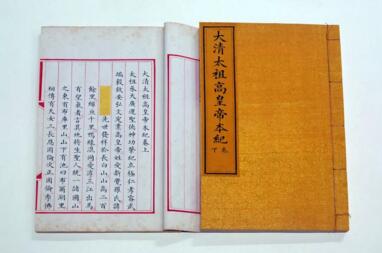 大清太祖高皇帝本紀
卷下
大清太祖高皇帝本紀卷上
太祖承天廣運聖德神功肇紀立極仁孝睿武
端毅欽安弘文定業高皇帝姓愛新覺羅氏諱
先世發祥於長白山山高二百
餘里綿亙千里鴨綠混同愛滹三江出焉
有望氣者言其地將生聖人統一諸國山
之東有布庫里山山下有池曰布爾湖里
相傳有天女三長恩固倫次正固倫季佛